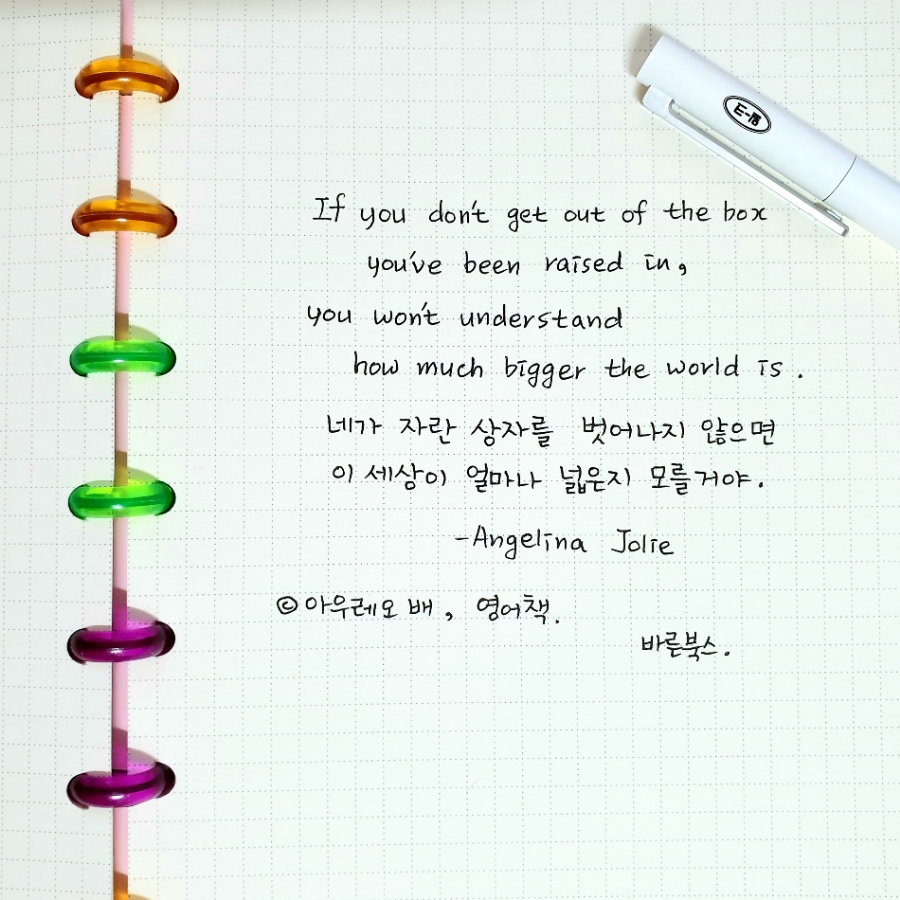 If you don't get out of the box
you've been raised in,
you won't understand
how much bigger the world is.
네가 자란 상자를 벗어나지 않으면
이 세상이 얼마나 넓은지 모를거야.
-Angelina Jolie
©아우레오 배, 영어책.
바른북스.